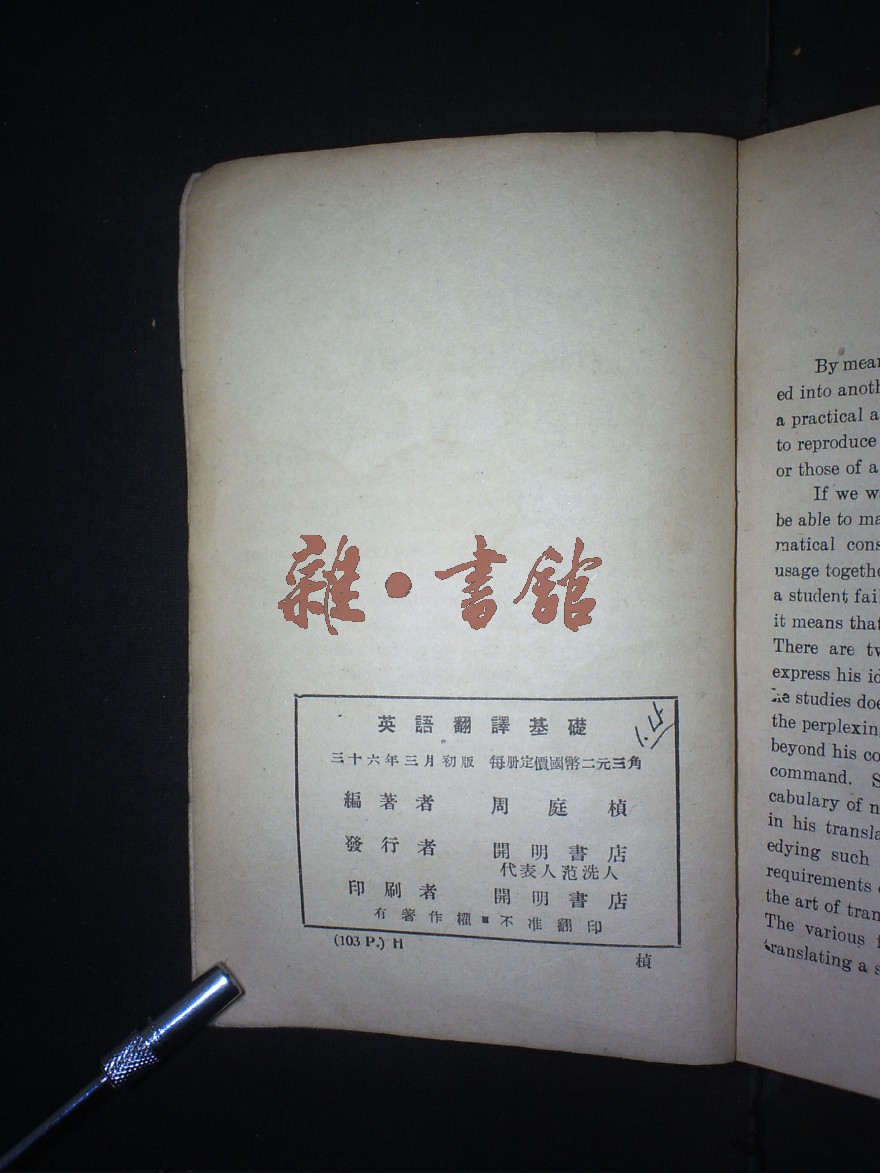 雜·書館
英語翻譯基礎
三十六年三月初版 每册定價國幣二元三角
編著者 周庭楨
發行者 開明書店
代表人范洗人
印刷者 開明書店
有著作權■不准翻印
(103 P.) H
楨
By mea
ed into anoth
a practical a
to reproduce
or those of a
If we w
be able to ma
matical cons
usage togethe
a student fai
it means that
There are tw
express his id
he studies doe
the perplexin
beyond his co
command. S
cabulary of n
in his transla
edying such
requirements
the art of tran
The various f
translating a s